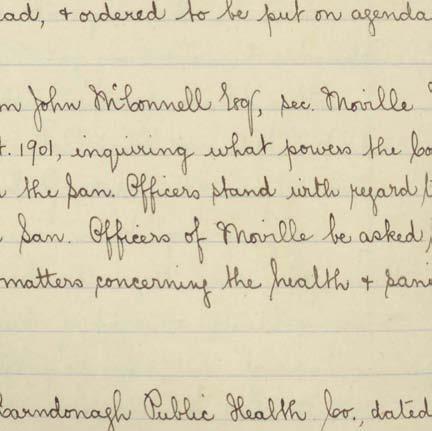 ad, & ordered to be put on agenda
m John McConnell Esq, sec. Moville
t. 1901, inquiring what powers the Co
the San. Officers stand with regard t
San. Officers of Moville be asked,
matters concerning the health & sani
Carndonagh Public Health Co., dated